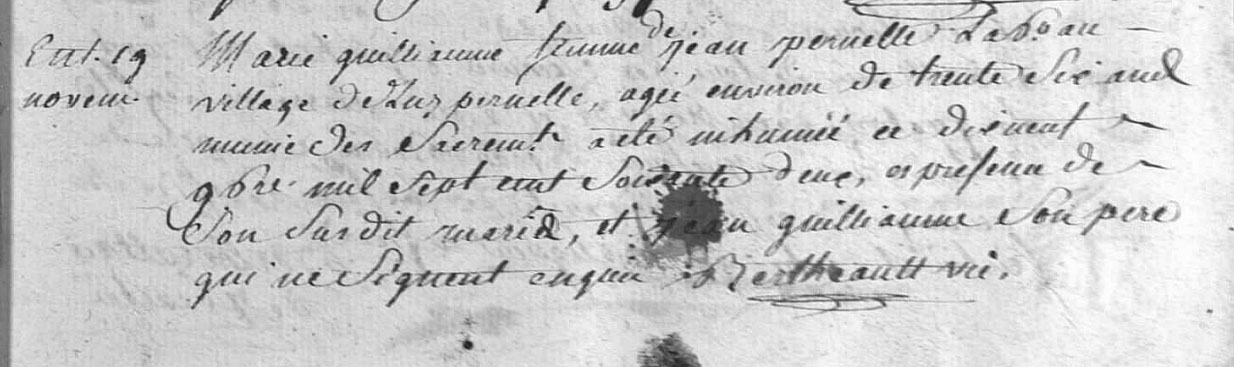 Ent. 19 Marie guillianne femme de jean pernelle Laboan
novem. village de Luz pernelle, agée environ de trente Six ans
munie des Sacremts. a eté inhumée ce dixneuf
9bre. mil Sept cent Soixante deux, en presence de
Son Susdit marid, et jean guillianne Son pere
qui ne Signent enquis Bertheault vic.